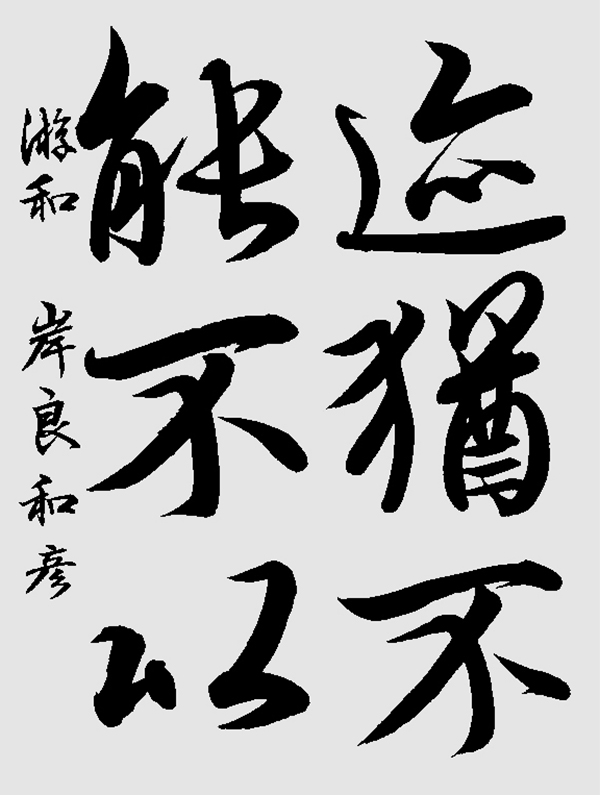 迹猶不
能不以
游和 岸良和彦